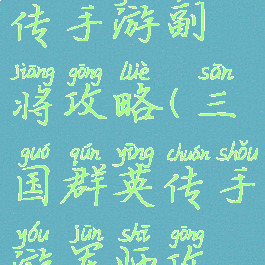 传手游副
jiāng gōng lüè sān
将攻略(三
guó qún yīng chuán shǒu
国群英传手
yóu jūn shī gōng
游军师攻